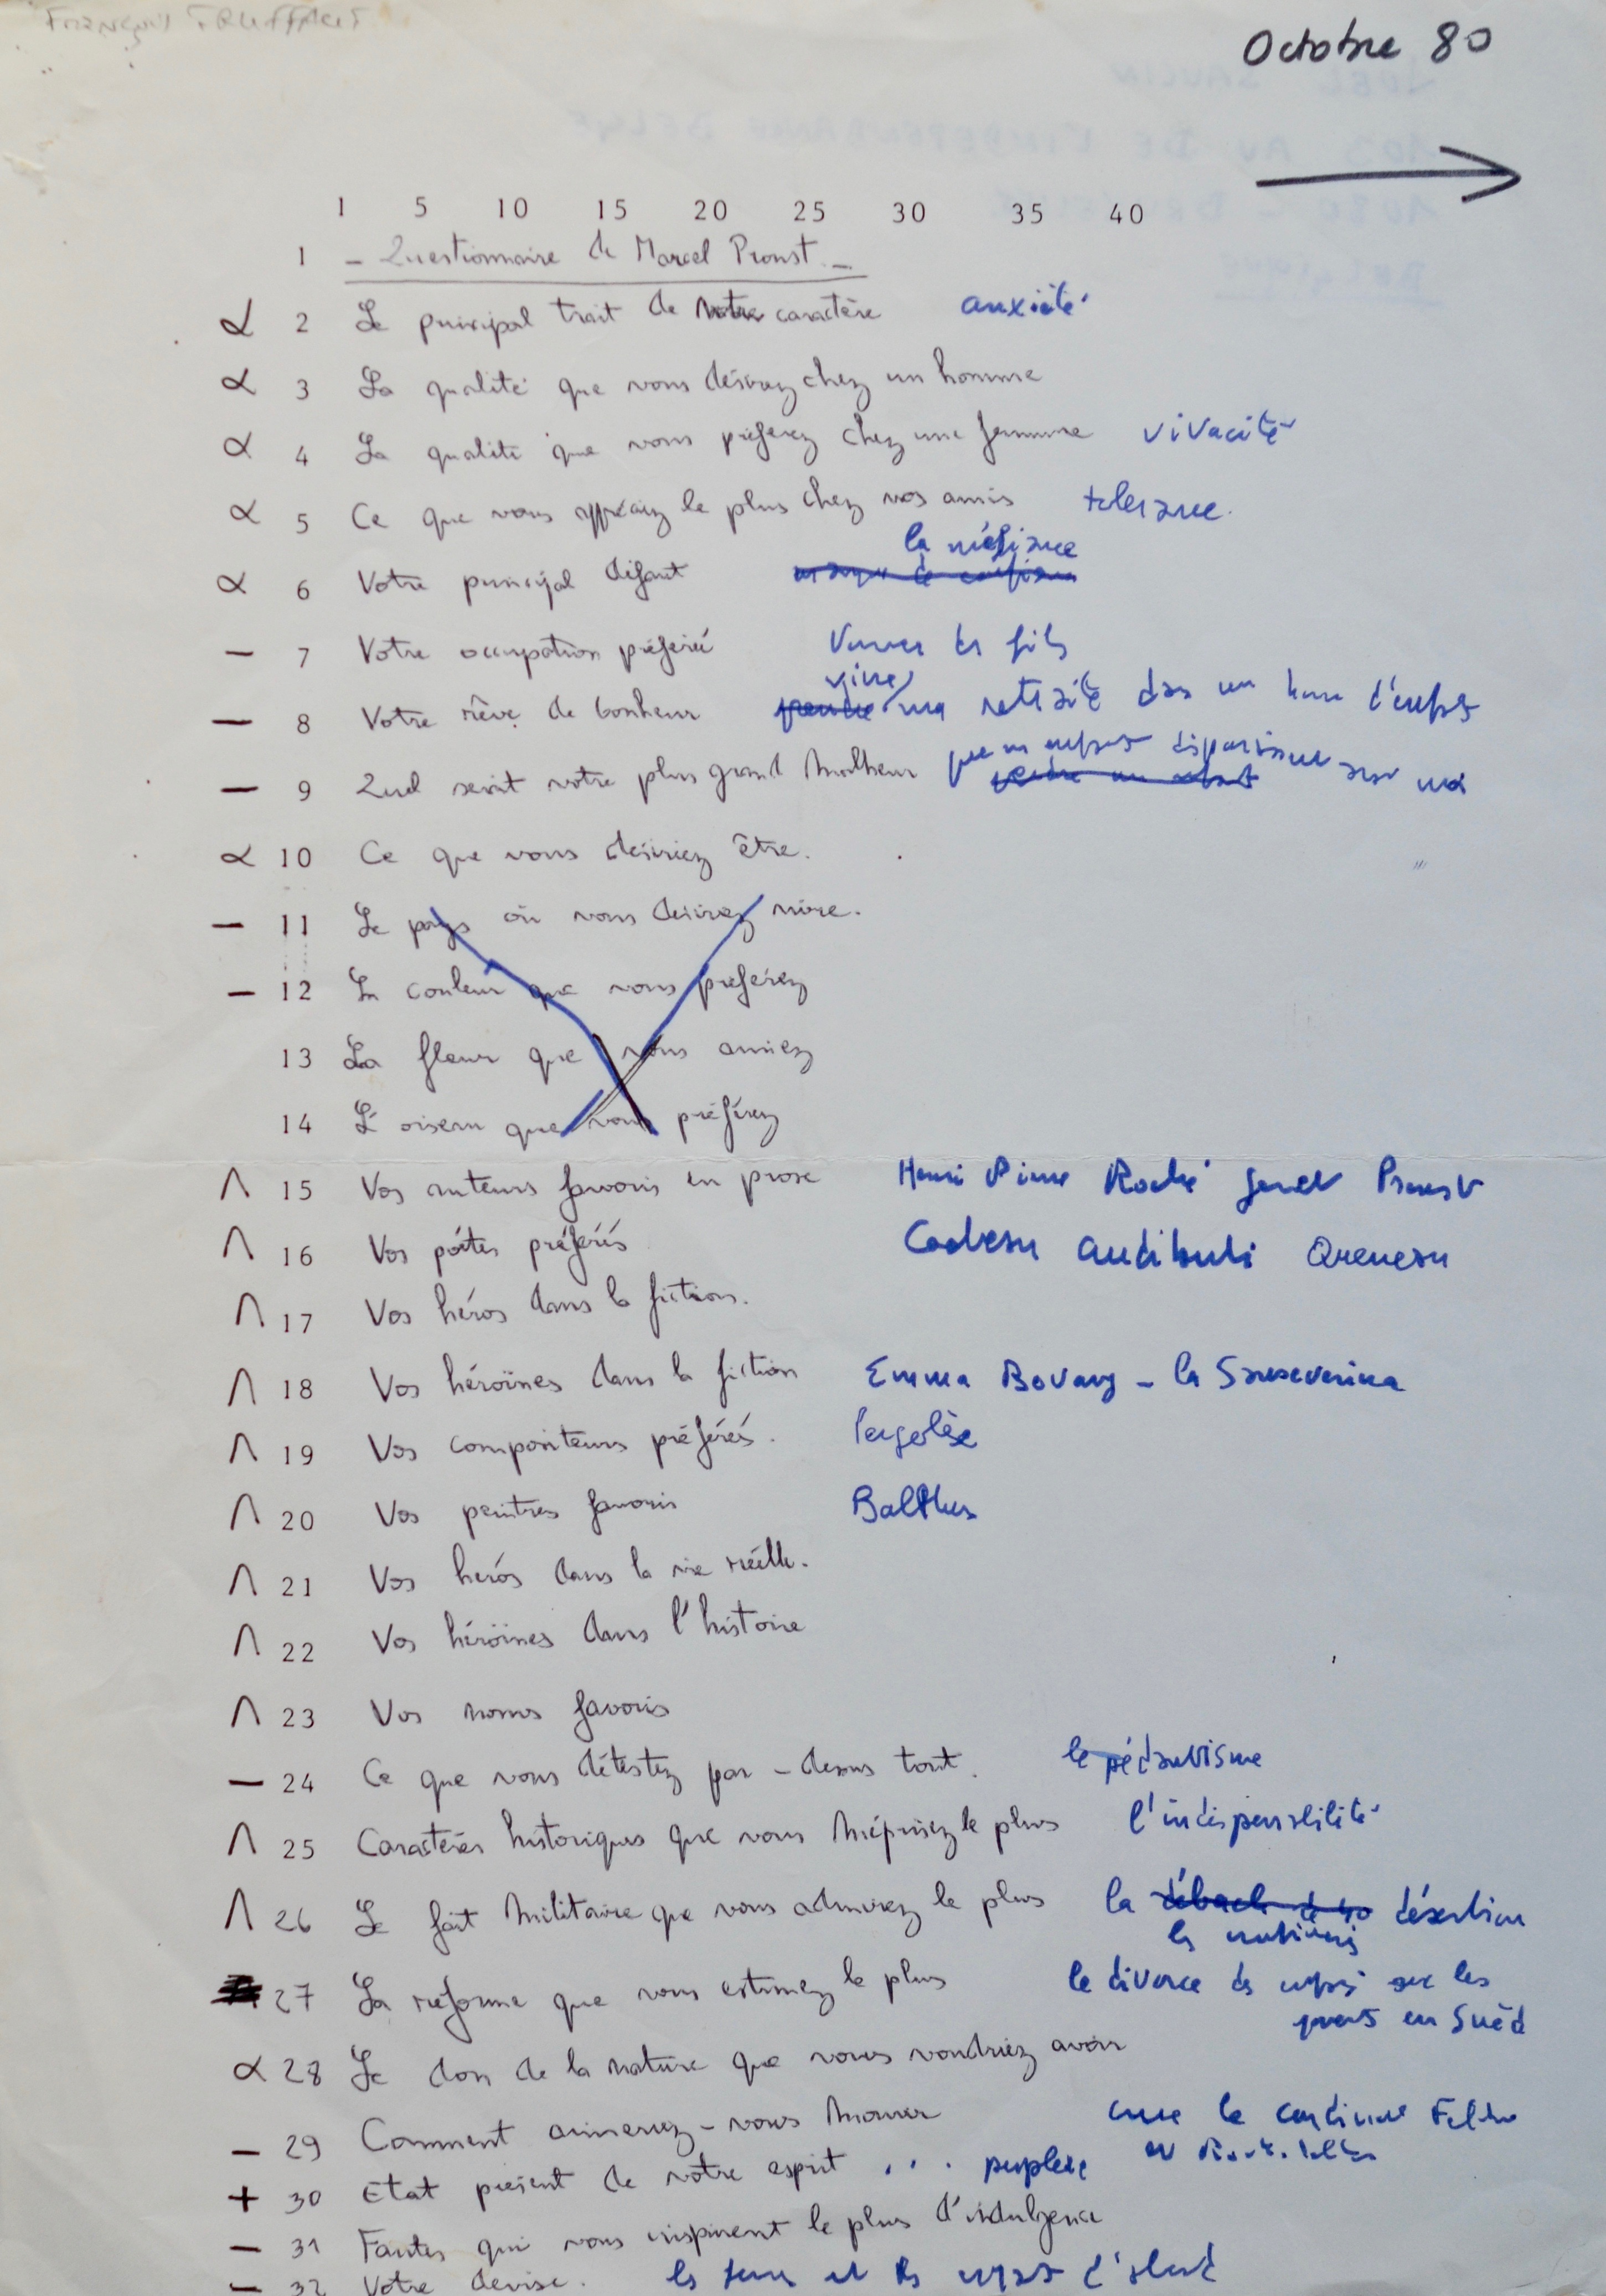 François Truffaut
Octobre 80
1 5 10 15 20 25 30 35 40
1 - Questionnaire de Marcel Proust -
α 2 Le principal trait de votre caractère anxiété
α 3 La qualité que vous désirez chez un homme
α 4 La qualité que vous préférez chez une femme vivacité
α 5 Ce que vous appréciez le plus chez vos amis tolerance.
la méfiance
α 6 Votre principal défaut manque de confiance
- 7 Votre occupation préférée
vivre
- 8 Votre rêve de bonheur prendre ma retraite dans un home d'enfants
- 9 Quel serait votre plus grand malheur que mes enfants disparaissent avant moi
perdre un enfant
α 10 Ce que vous désiriez être.
- 11 Le pays où vous désirez vivre.
- 12 La couleur que vous préférez
13 La fleur que vous aimez
14 L'oiseau que vous préférez
Λ 15 Vos auteurs favoris en prose Henri Pierre Roché Genet Proust
Λ 16 Vos poètes préférés Cocteau Audiberti Queneau
Λ 17 Vos héros dans la fiction.
Λ 18 Vos héroïnes dans la fiction Emma Bovary - la Sanseverina
Λ 19 Vos compositeurs préférés. Pergolèse
Λ 20 Vos peintres favoris Balthus
Λ 21 Vos héros dans la vie réelle.
Λ 22 Vos héroïnes dans l'histoire
Λ 23 Vos noms favoris
- 24 Ce que vous détestez par-dessus tout. le pédantisme
Λ 25 Caractères historiques que vous méprisez le plus
Λ 26 Le fait militaire que vous admirez le plus la débacle de 40 désertion
les mutineries
27 La réforme que vous estimez le plus le divorce des enfants avec les
parents en Suède
α 28 Le don de la nature que vous voudriez avoir
- 29 Comment aimeriez-vous mourir comme le
+ 30 Etat présent de votre esprit ... perplexe
- 31 Fautes qui vous inspirent le plus d'indulgence
- 32 Votre devise. les femmes et les enfants d'abord